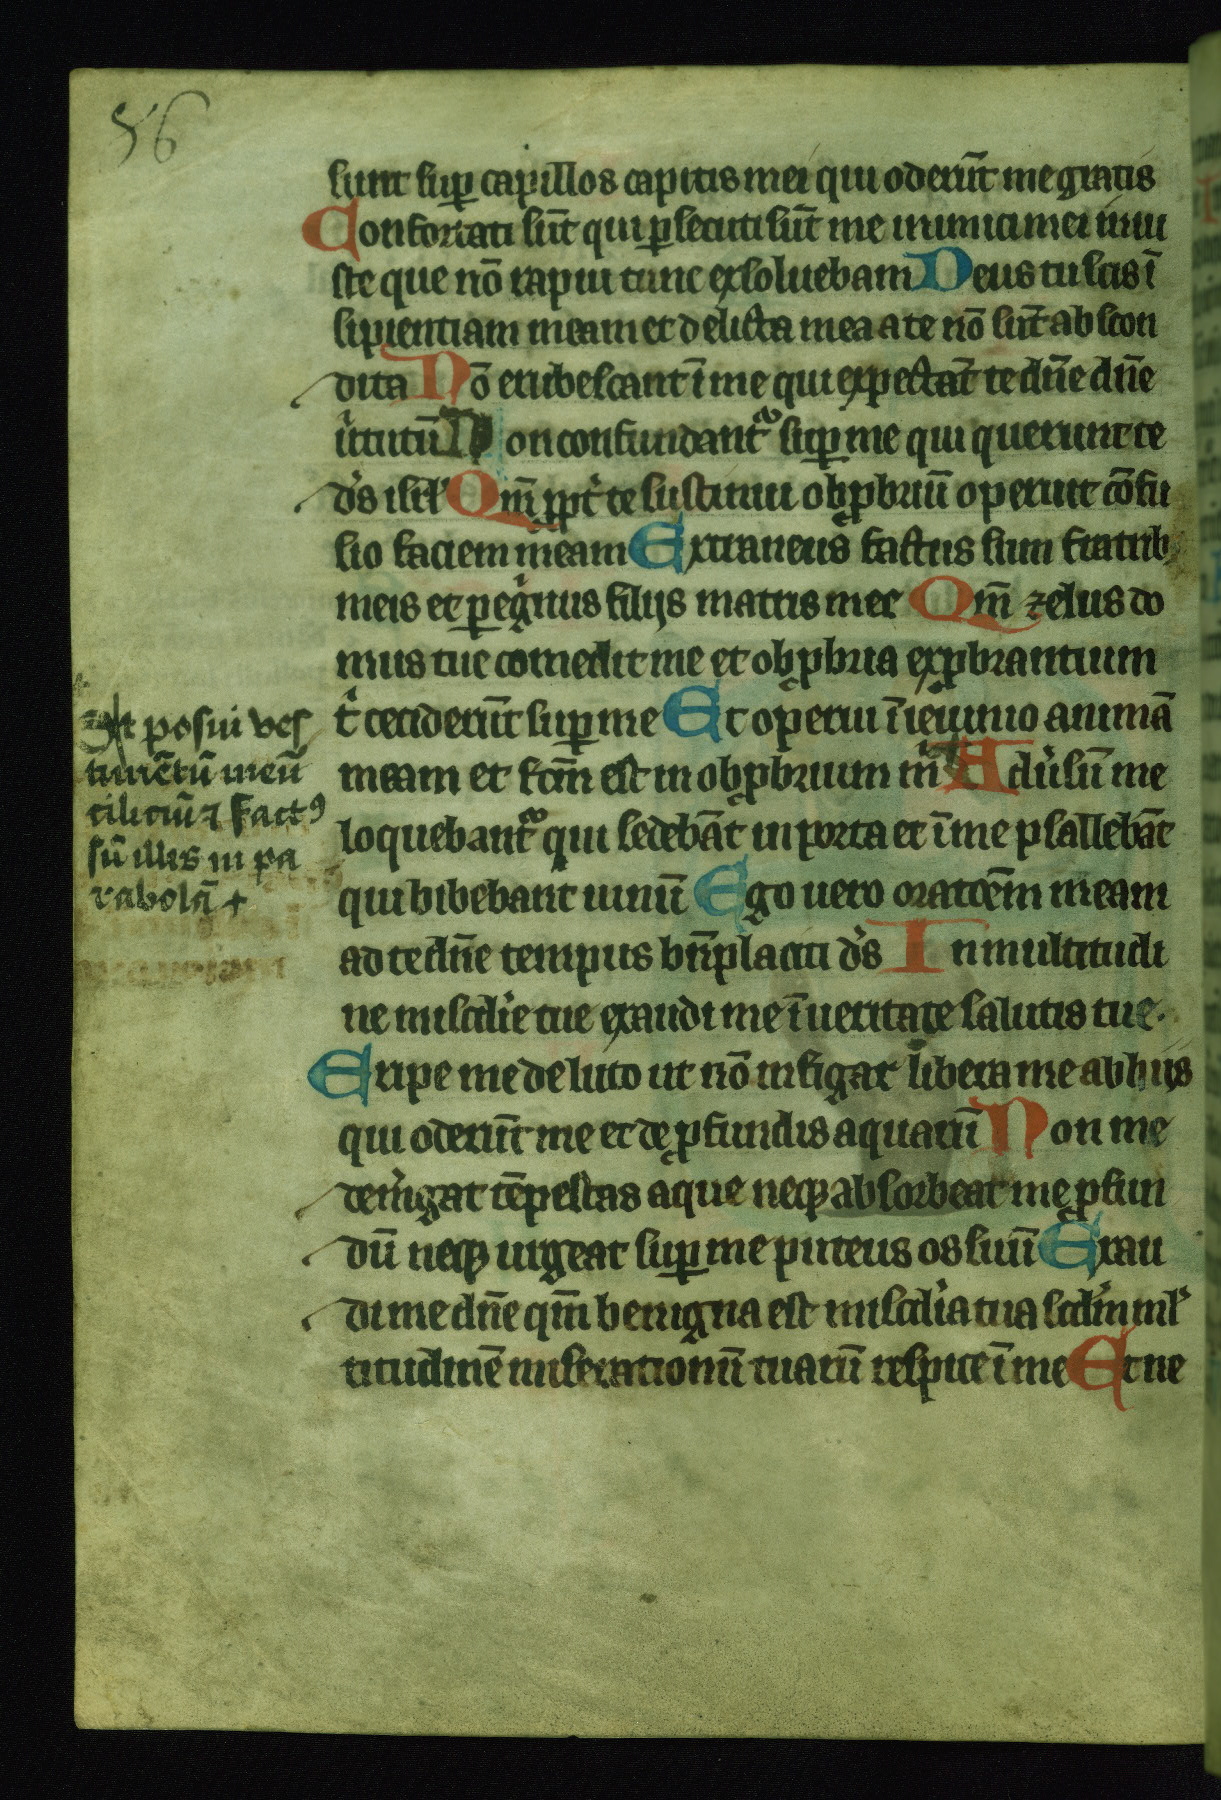 56
sunt sup capillos capitis mei qui oderūt me gratis
Confortati sūt qui psecuti sūt me inimici mei iniu
ste que nō rapui tunc exsoluebam Deus tu scis ī
sipientiam meam et delicta mea a te nō sūt abscon
dita Nō erubescant ī me qui expectāt te dn̄e dn̄e
uͥtutū Non confundantᷣ sup me qui querunt te
dˀs isrl' Qm̄ ppt' te sustinui obpbriū operuit cōfu
sio faciem meam Extraneus factus sum fratrib
meis et pegͥnus filijs matris mee Qm̄ zelus do
mus tue comedit me et obpbria expbrantium
tͥ ceciderūt sup me Et operui ī ieiunio animā
meam et fc̄m est in obpbrium mͥ Aduˀsū me
loquebantᷣ qui sedebāt in porta et ī me psallebāt
qui bibebant uinū Ego uero oratōem meam
ad te dn̄e tempus bn̄placiti dˀs In multitudi
ne miscdˀie tue exaudi me ī ueritate salutis tue.
Eripe me de luto ut nō infigar libera me ab hijs
qui oderūt me et de pfundis aquarū Non me
demˀigat tēpestas aque neqȝ absorbeat me pfun
dū neqȝ urgeat sup me puteus os suū Exau
di me dn̄e qm̄ benigna est miscdˀia tua scdm̄ ml'
titudinē miserationū tuarū respice ī me Et ne
Et posui ves
timētū meū
ciliciū ⁊ factꝰ
sū illis in pa
rabolā +